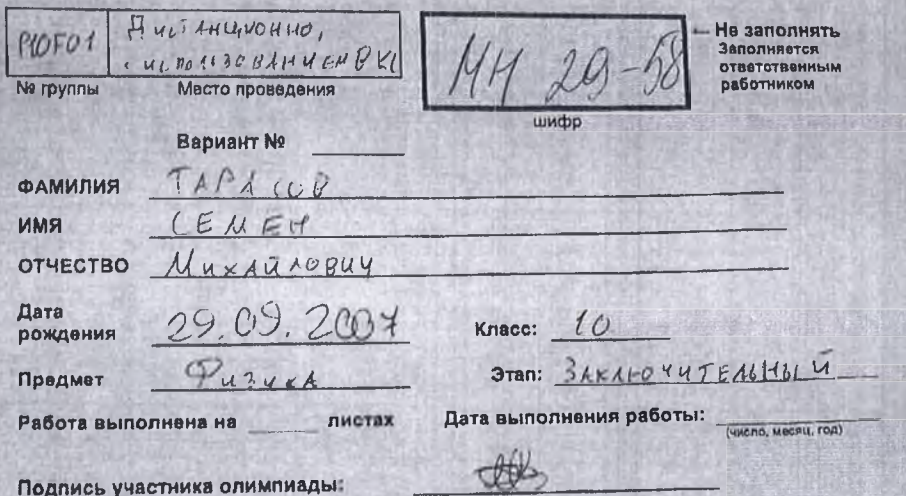 P10F01 Дистанционно,
с использованием ВКС
№ группы Место проведения
МН 29-58
шифр
← Не заполнять
Заполняется
ответственным
работником
Вариант №
ФАМИЛИЯ ТАРАСОВ
ИМЯ СЕМЕН
ОТЧЕСТВО МИХАЙЛОВИЧ
Дата
рождения 29.09.2007 Класс: 10
Предмет Физика Этап: ЗАКЛЮЧИТЕЛЬНЫЙ
Работа выполнена на листах Дата выполнения работы:
(число, месяц, год)
Подпись участника олимпиады: